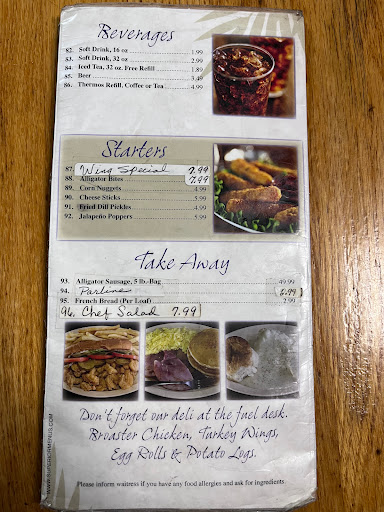 Beverages
82. Soft Drink, 16 oz 1.99
83. Soft Drink, 32 oz 2.99
84. Iced Tea, 32 oz. Free Refill 1.89
85. Beer 3.49
86. Thermos Refill, Coffee or Tea 4.99
Starters
87. Wing Special 7.99
88. Alligator Bites 7.99
89. Corn Nuggets 4.99
90. Cheese Sticks 5.99
91. Fried Dill Pickles 4.99
92. Jalapeño Poppers 5.99
Take Away
93. Alligator Sausage, 5 lb.-Bag 49.99
94. Parline 2.99
95. French Bread (Per Loaf) 2.99
96. Chef Salad 7.99
Don't forget our deli at the fuel desk.
Broaster Chicken, Turkey Wings,
Egg Rolls & Potato Logs.
Please inform waitress if you have any food allergies and ask for ingredients.